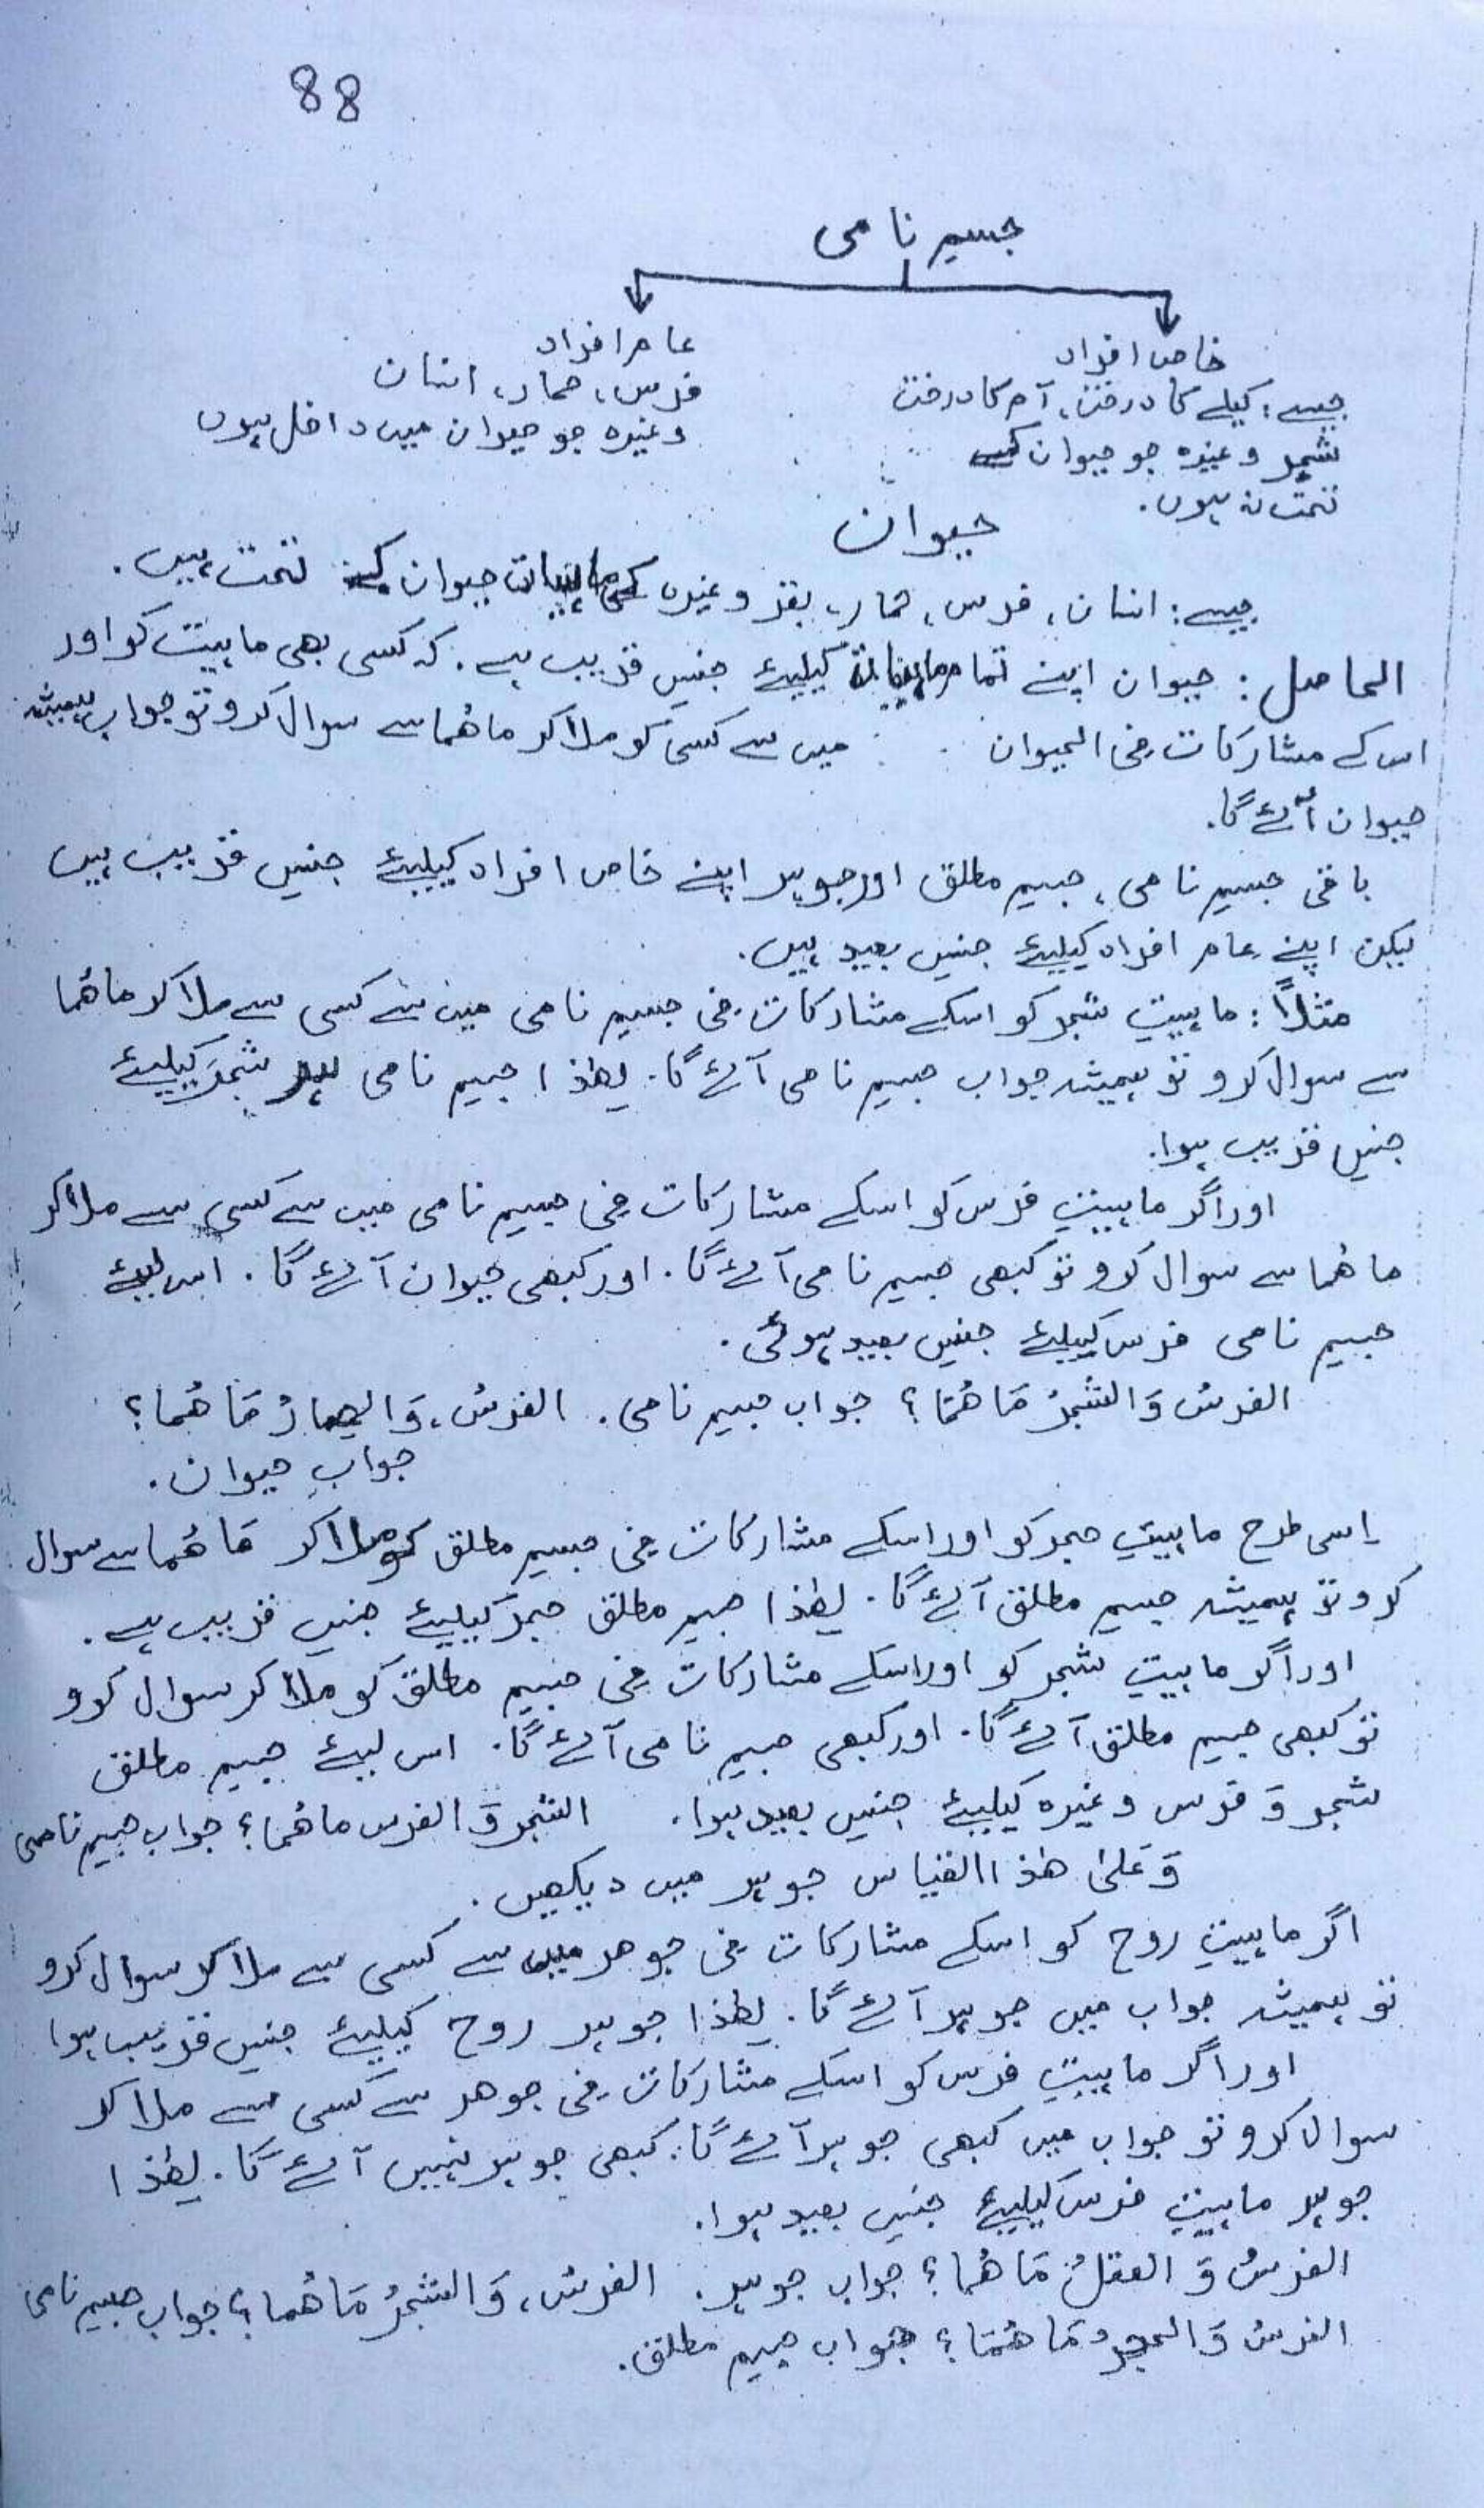 88
جسم نامی
خاص افراد
جیسے: کیلے کا درخت، آم کا درخت
شجر وغیرہ جو حیوان کے
تحت نہ ہوں.
عام افراد
فرس، حمار، انسان
وغیرہ جو حیوان میں داخل ہوں
حیوان
جیسے: انسان، فرس، حمار، بقر وغیرہ کی ماہیات حیوان کے تحت ہیں.
الحاصل: حیوان اپنے تمام کیلیئے جنس قریب ہے. کہ کسی بھی ماہیت کو اور
اس کے مشارکات فی الحیوان میں سے کسی کو ملا کر ماھُما سے سوال کرو تو جواب ہمیشہ
حیوان آئے گا.
باقی جسم نامی، جسم مطلق اور جوہر اپنے خاص افراد کیلیئے جنس قریب ہیں
لیکن اپنے عام افراد کیلیئے جنس بعید ہیں.
مثلاً: ماہیتِ شجر کو اسکے مشارکات فی جسم نامی میں سے کسی سے ملا کر ماھُما
سے سوال کرو تو ہمیشہ جواب جسم نامی آئے گا. لھٰذا جسم نامی شجر کیلیئے
جنس قریب ہوا.
اور اگر ماہیتِ فرس کو اسکے مشارکات فی جسم نامی میں سے کسی سے ملا کر
ماھُما سے سوال کرو تو کبھی جسم نامی آئے گا. اور کبھی حیوان آئے گا. اس لیئے
جسم نامی فرس کیلیئے جنس بعید ہوئی.
الفرسُ وَالشجرُ مَاھُمَا؟ جواب جسم نامی. الفرسُ، وَالحمارُ مَاھُما؟
جواب حیوان.
اِسی طرح ماہیتِ حجر کو اور اسکے مشارکات فی جسم مطلق کو ملا کر مَاھُما سے سوال
کرو تو ہمیشہ جسم مطلق آئے گا. لھٰذا جسم مطلق حجر کیلیئے جنس قریب ہے.
اور اگر ماہیتِ شجر کو اور اسکے مشارکات فی جسم مطلق کو ملا کر سوال کرو
تو کبھی جسم مطلق آئے گا. اور کبھی جسم نامی آئے گا. اس لیئے جسم مطلق
شجر وَ فرس وغیرہ کیلیئے جنس بعید ہوا. الشجر وَ الفرس ماھُما؟ جواب جسم نامی
وَعَلیٰ ھٰذا القیاس جوہر میں دیکھیں.
اگر ماہیتِ روح کو اسکے مشارکات فی جوھر میں سے کسی سے ملا کر سوال کرو
تو ہمیشہ جواب میں جوہر آئے گا. لھٰذا جوہر روح کیلیئے جنس قریب ہوا
اور اگر ماہیتِ فرس کو اسکے مشارکات فی جوھر سے کسی سے ملا کر
سوال کرو تو جواب میں کبھی جوہر آئے گا. کبھی جوہر نہیں آئے گا. لھٰذا
جوہر ماہیتِ فرس کیلیئے جنس بعید ہوا.
الفرسُ وَ العقلُ مَاھُما؟ جواب جوہر. الفرسُ، وَالشجرُ مَاھُما؟ جواب جسم نامی
الفرسُ وَالحجرُ مَاھُمَا؟ جواب جسم مطلق.